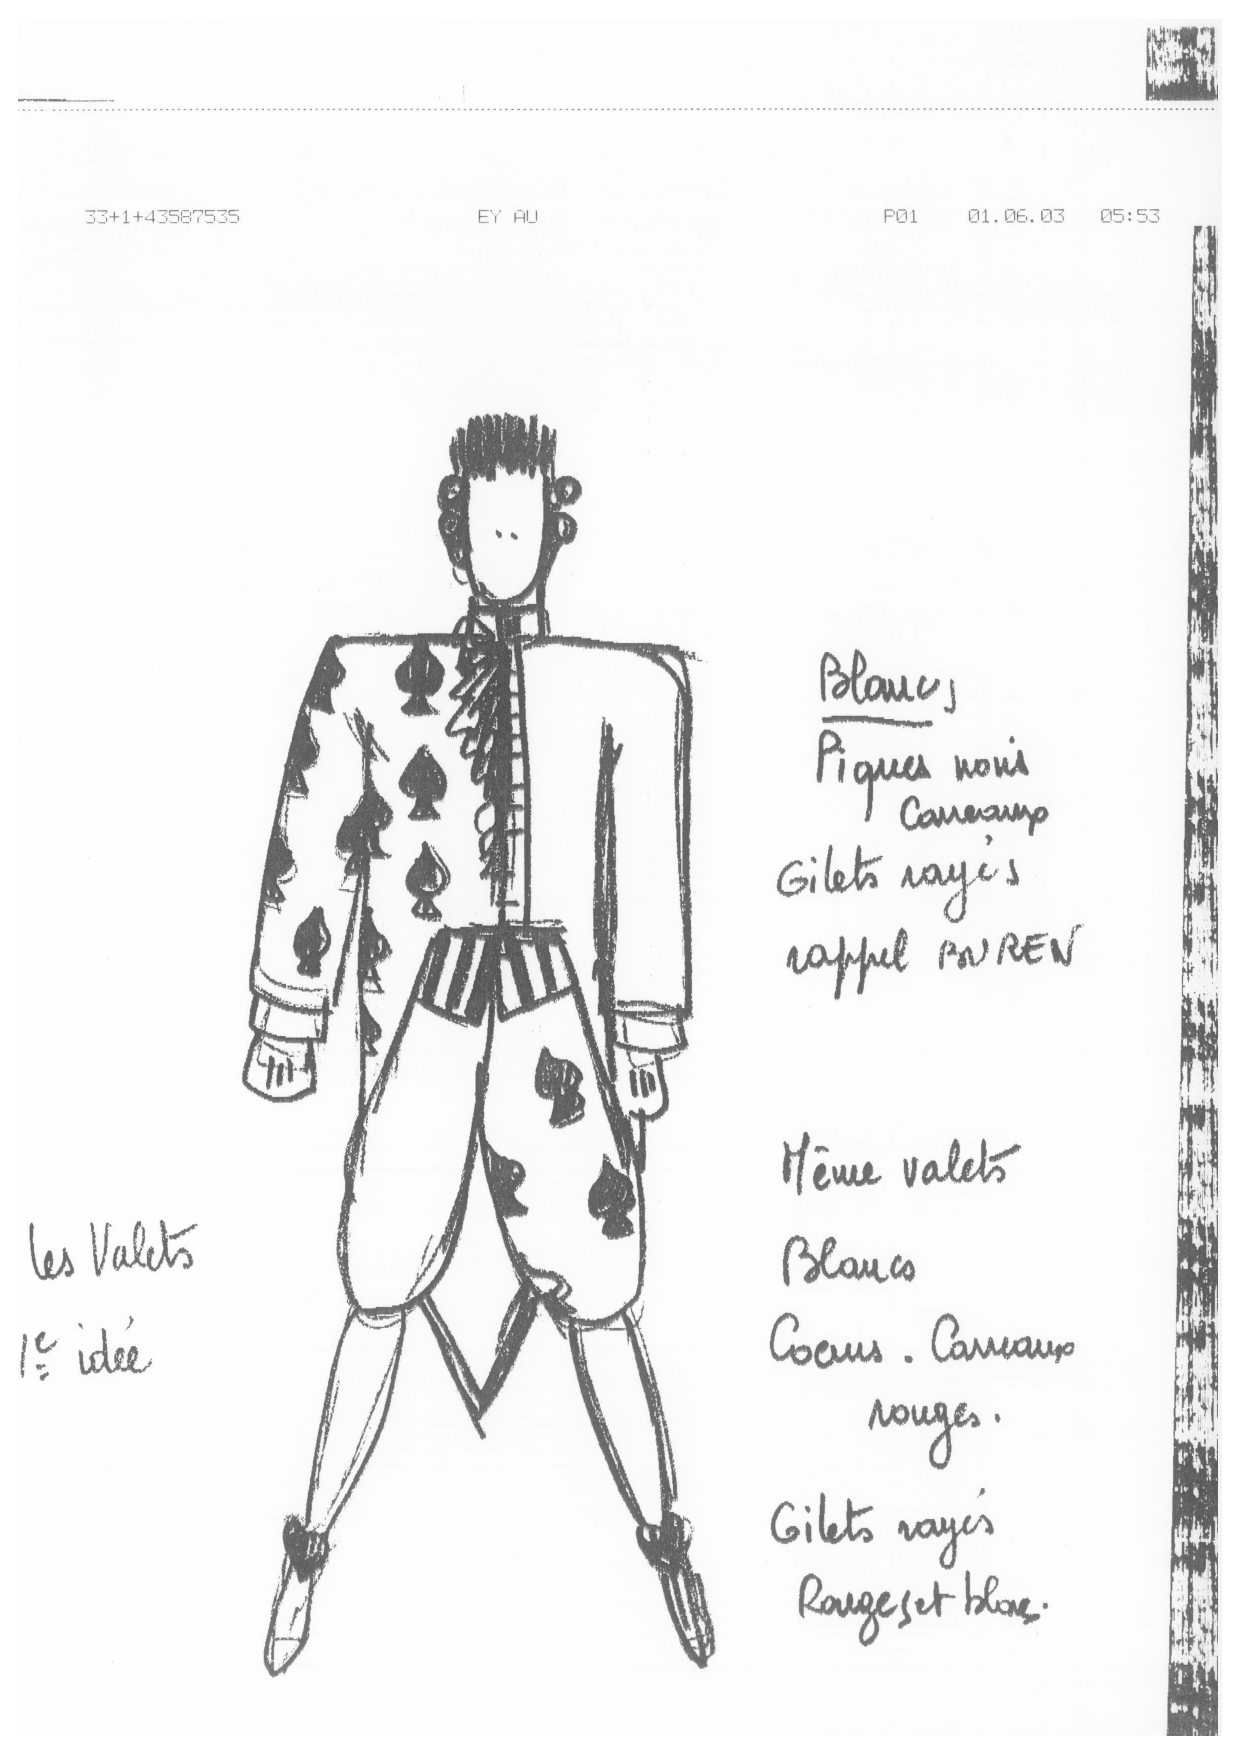 33+1+43587535 EY AU P01 01.06.03 05:53
Blancs
Piques noirs
Carreaux
Gilets rayés
rappel BUREN
Même valets
Blancs
Coeurs . Carreaux
rouges.
Gilets rayés
Rouges et blanc.
Les Valets
1e idée